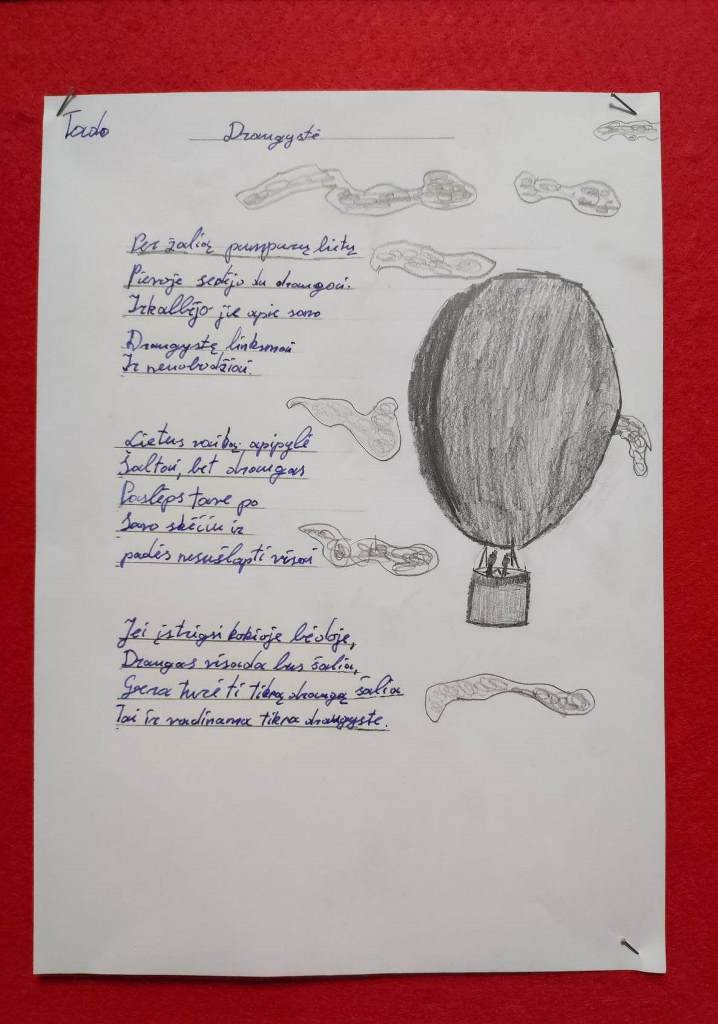 Tado
Draugystė
Per žalią pumpurų lietų
Pievoje sedėjo du draugai.
Iškalbėjo jie apie savo
Draugystę linksmai
Ir nenuobodžiai.
Lietus vaiką apipylė
Šaltai, bet draugas
Paslėps tave po
Savo skėčiu ir
padės nesušlapti visai
Jei įstrigsi kokioje bėdoje,
Draugas visada bus šalia,
Gera turėti tikrą draugą šalia
Tai ir vadinama tikra draugyste.